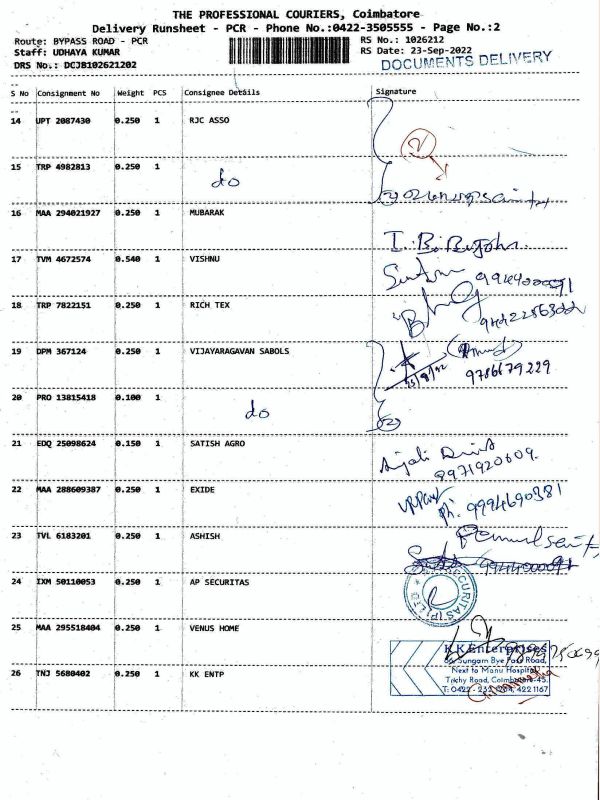 THE PROFESSIONAL COURIERS, Coimbatore
Delivery Runsheet - PCR - Phone No.:0422-3505555 - Page No.:2
Route: BYPASS ROAD - PCR
RS No.: 1026212
Staff: UDHAYA KUMAR
RS Date: 23-Sep-2022
DRS No.: DCJB102621202
DOCUMENTS DELIVERY
S No Consignment No Weight PCS Consignee Details Signature
14 UPT 2087430 0.250 1 RJC ASSO
15 TRP 4982813 0.250 1 do
16 MAA 294021927 0.250 1 MUBARAK
17 TVM 4672574 0.540 1 VISHNU
18 TRP 7822151 0.250 1 RICH TEX
19 DPM 367124 0.250 1 VIJAYARAGAVAN SABOLS
9786679229
20 PRO 13815418 0.100 1 do
21 EDQ 25098624 0.150 1 SATISH AGRO
8971920609.
22 MAA 288609387 0.250 1 EXIDE
Ph: 9994690381
23 TVL 6183201 0.250 1 ASHISH
24 IXM 50110053 0.250 1 AP SECURITAS
25 MAA 295518404 0.250 1 VENUS HOME
26 TNJ 5680402 0.250 1 KK ENTP
KK Enterprises
Sungam Bye Pass Road,
Next to Manu Hospital
Trichy Road, Coimbatore-45.